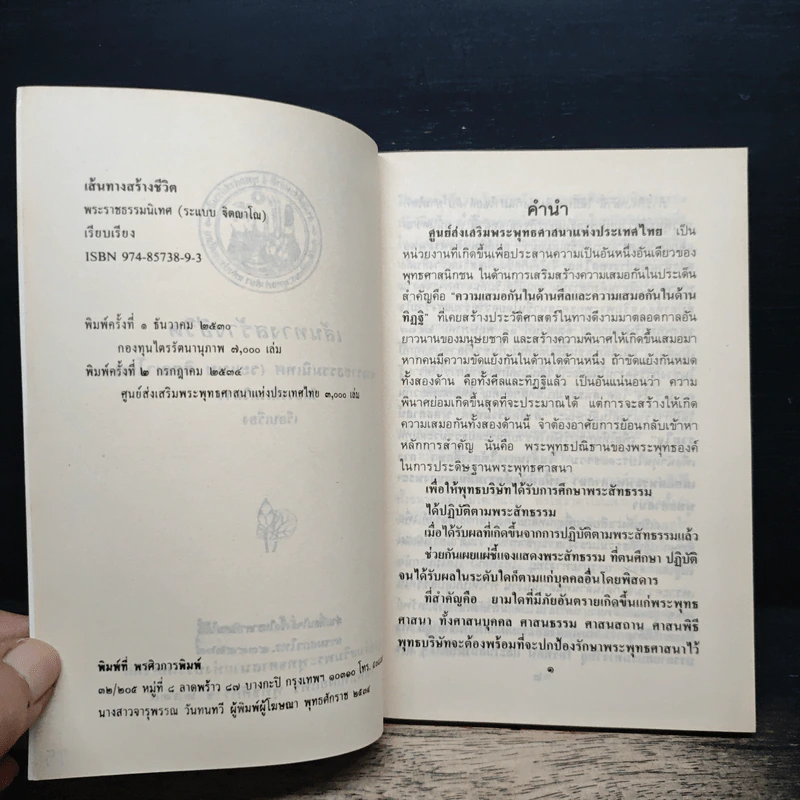 เส้นทางสร้างชีวิต
พระราชธรรมนิเทศ (ระแบบ จิตญาโณ)
เรียบเรียง
ISBN 974-85738-9-3
พิมพ์ครั้งที่ ๑ ธันวาคม ๒๕๓๐
กองทุนไตรรัตนานุภาพ ๗,๐๐๐ เล่ม
พิมพ์ครั้งที่ ๒ กรกฎาคม ๒๕๓๔
ศูนย์ส่งเสริมพระพุทธศาสนาแห่งประเทศไทย ๓,๐๐๐ เล่ม
พิมพ์ที่ พรศิวการพิมพ์
๓๒/๒๐๕ หมู่ที่ ๘ ลาดพร้าว ๘๗ บางกะปิ กรุงเทพฯ ๑๐๓๑๐ โทร.
นางสาวจารุพรรณ วันทนทวี ผู้พิมพ์ผู้โฆษณา พุทธศักราช ๒๕๓๔
คำนำ
ศูนย์ส่งเสริมพระพุทธศาสนาแห่งประเทศไทย เป็น
หน่วยงานที่เกิดขึ้นเพื่อประสานความเป็นอันหนึ่งอันเดียวของ
พุทธศาสนิกชน ในด้านการเสริมสร้างความเสมอกันในประเด็น
สำคัญคือ "ความเสมอกันในด้านศีลและความเสมอกันในด้าน
ทิฏฐิ" ที่เคยสร้างประวัติศาสตร์ในทางดีงามมาตลอดกาลอัน
ยาวนานของมนุษยชาติ และสร้างความพินาศให้เกิดขึ้นเสมอมา
หากคนมีความขัดแย้งกันในด้านใดด้านหนึ่ง ถ้าขัดแย้งกันหมด
ทั้งสองด้าน คือทั้งศีลและทิฏฐิแล้ว เป็นอันแน่นอนว่า ความ
พินาศย่อมเกิดขึ้นสุดที่จะประมาณได้ แต่การจะสร้างให้เกิด
ความเสมอกันทั้งสองด้านนี้ จำต้องอาศัยการย้อนกลับเข้าหา
หลักการสำคัญ นั่นคือ พระพุทธปณิธานของพระพุทธองค์
ในการประดิษฐานพระพุทธศาสนา
เพื่อให้พุทธบริษัทได้รับการศึกษาพระสัทธรรม
ได้ปฏิบัติตามพระสัทธรรม
เมื่อได้รับผลที่เกิดขึ้นจากการปฏิบัติตามพระสัทธรรมแล้ว
ช่วยกันเผยแผ่ชี้แจงแสดงพระสัทธรรม ที่ตนศึกษา ปฏิบัติ
จนได้รับผลในระดับใดก็ตามแก่บุคคลอื่นโดยพิสดาร
ที่สำคัญคือ ยามใดที่มีภัยอันตรายเกิดขึ้นแก่พระพุทธ
ศาสนา ทั้งศาสนบุคคล ศาสนธรรม ศาสนสถาน ศาสนพิธี
พุทธบริษัทจะต้องพร้อมที่จะปกป้องรักษาพระพุทธศาสนาไว้
๑